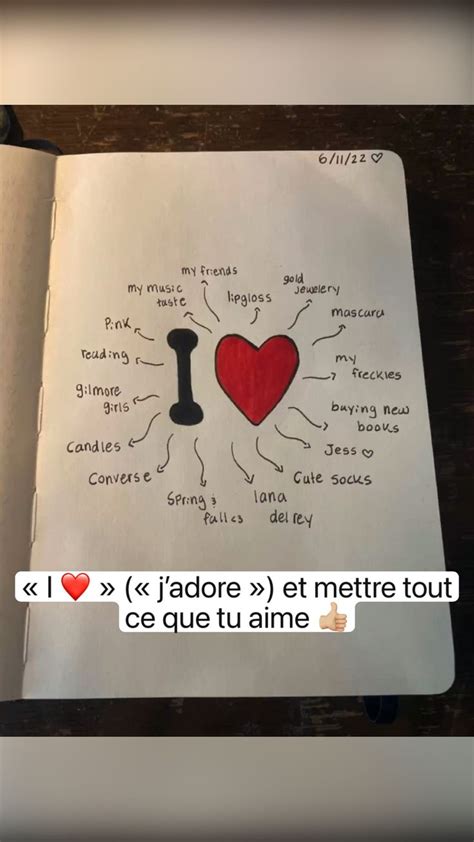 6/11/22 ♡
my friends
my music
taste
lipgloss
gold
jewelery
mascara
Pink
I ❤
reading
my
freckles
gilmore
girls
buying new
books
Candles
Jess ♡
Converse
Cute socks
Spring &
fall <3
lana
del rey
« I ❤️ » (« j’adore ») et mettre tout
ce que tu aime 👍🏻